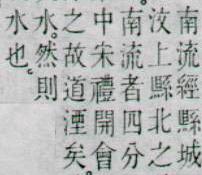 南流經縣城
汶上縣北之
南流者四分
中宋禮開會
之故道湮矣。
水。然則
水也。